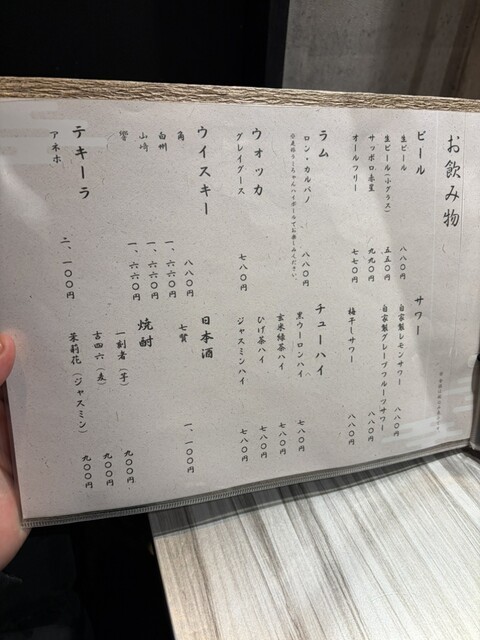 お飲み物
ビール
生ビール 八八〇円
生ビール(小グラス) 五五〇円
サッポロ赤星 九九〇円
オールフリー 七七〇円
ラム
ロン・カルバノ 八八〇円
ハイボールでお楽しみください。
ウォッカ
グレイグース 七八〇円
ウイスキー
角 八八〇円
白州 一、六六〇円
山崎 一、六六〇円
響 一、六六〇円
テキーラ
アネホ 二、一〇〇円
サワー
自家製レモンサワー 八八〇円
自家製グレープフルーツサワー 八八〇円
梅干しサワー 八八〇円
チューハイ
黒ウーロンハイ 七八〇円
玄米緑茶ハイ 七八〇円
ひげ茶ハイ 七八〇円
ジャスミンハイ 七八〇円
日本酒
七賢 一、一〇〇円
焼酎
一刻者(芋) 九〇〇円
吉四六(麦) 九〇〇円
茉莉花(ジャスミン) 九〇〇円